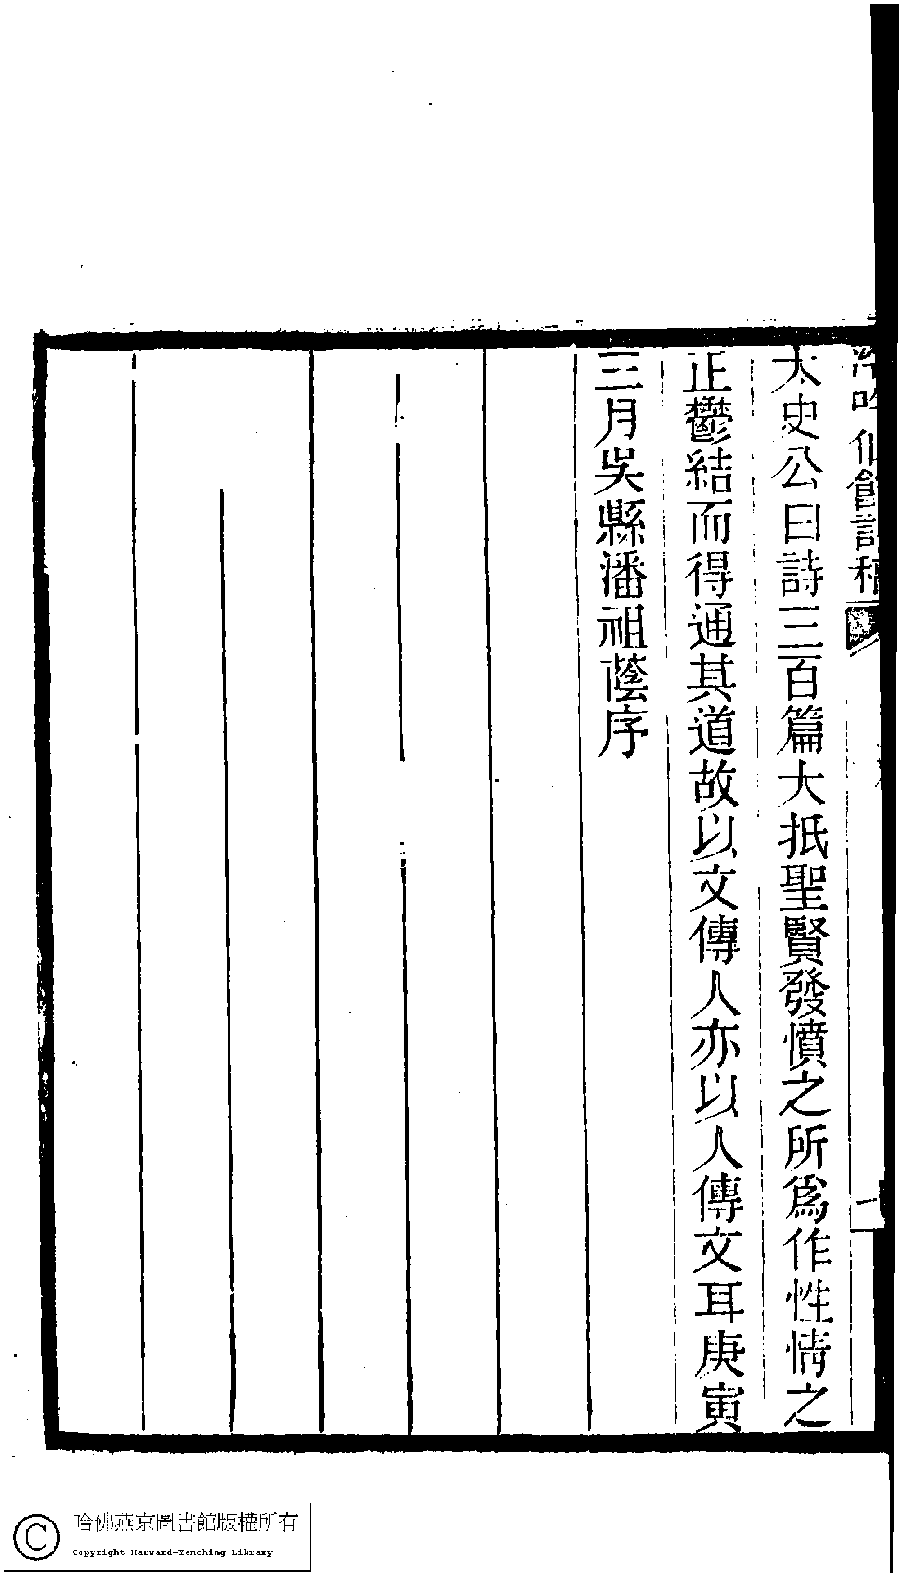 太史公曰詩三百篇大抵聖賢發憤之所爲作性情之
正鬱結而得通其道故以文傳人亦以人傳文耳庚寅
三月吳縣潘祖蔭序
哈佛燕京圖書館版權所有
Copyright Harvard-Yenching Library